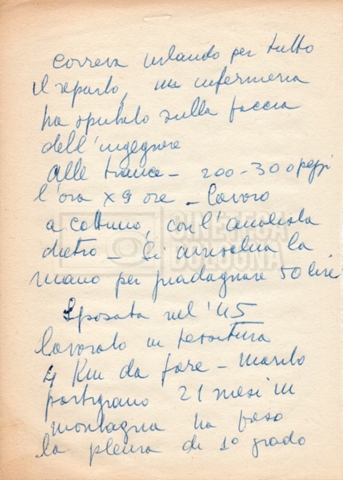 correva urlando per tutto
il reparto, un infermiera
ha sputato sulla faccia
dell'ingegnere
alle trance - 200-300 pezzi
l'ora x 9 ore - lavoro
a cottimo, con l'analista
dietro - Si la
mano per guadagnare 50 lire
Sposata nel '45
lavorato in tessitura
4 Km da fare - marito
partigiano 21 mesi in
montagna ha preso
la pleura di 1° grado
CINETECA
BOLOGNA